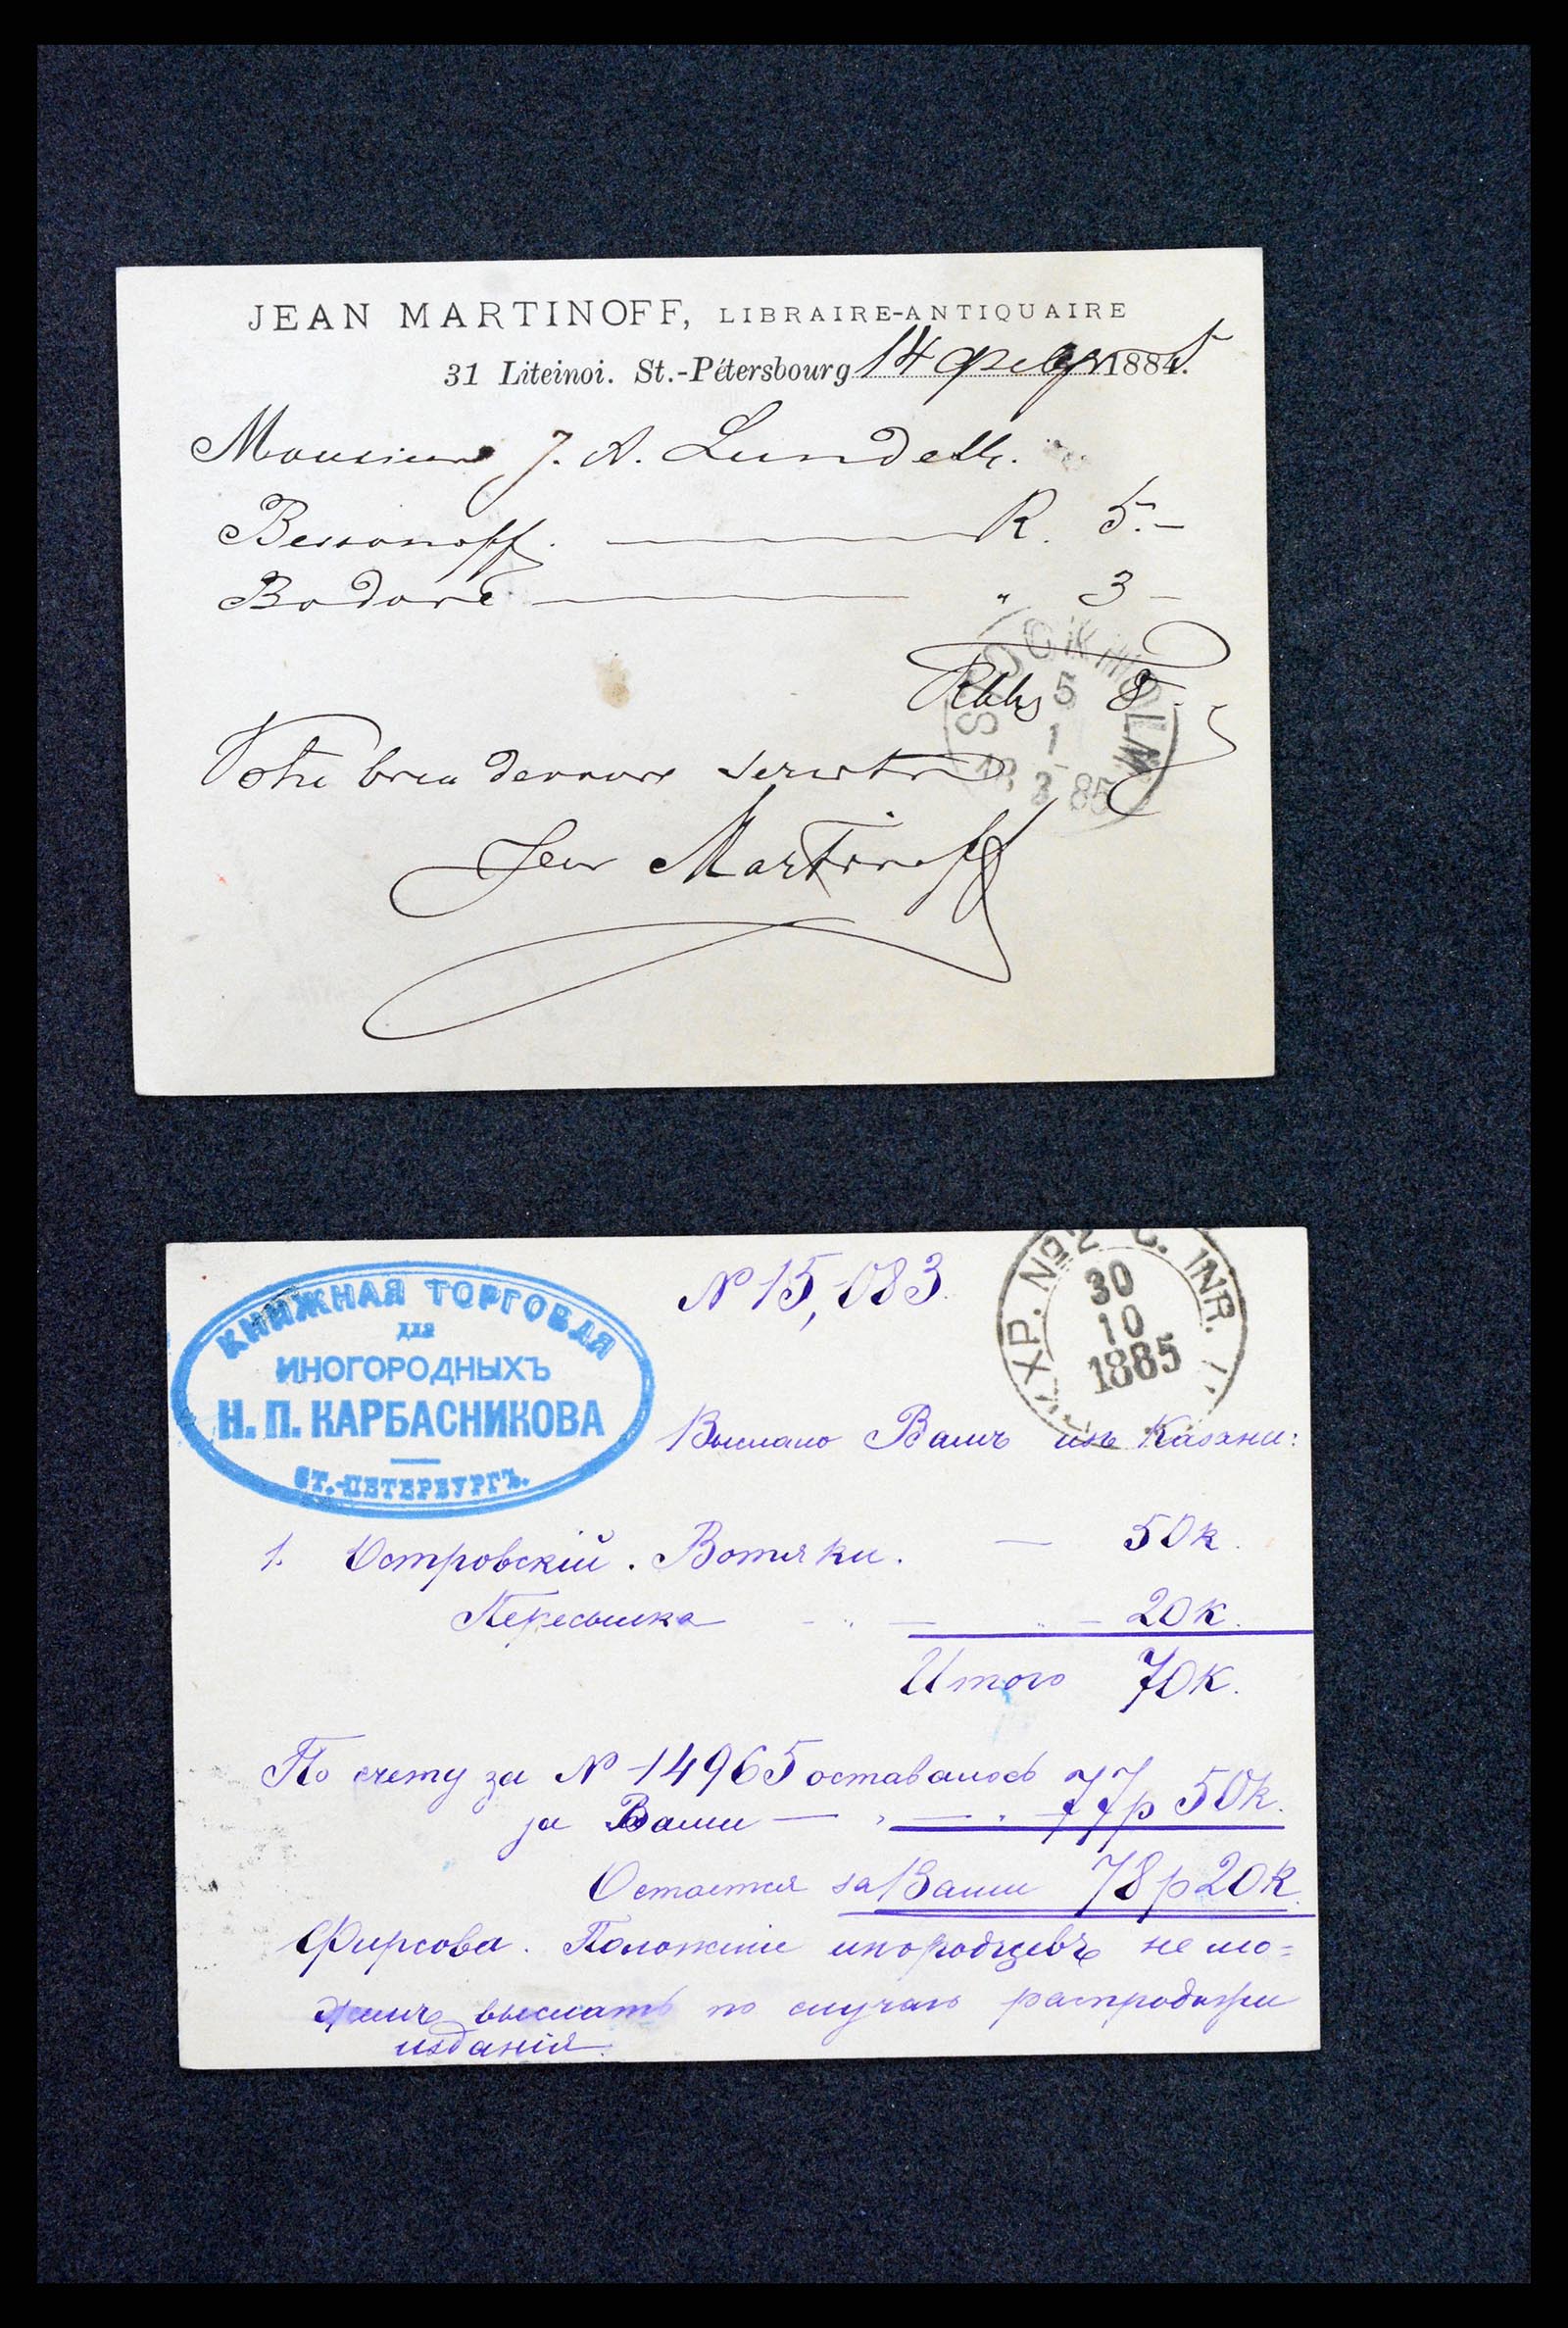 JEAN MARTINOFF, LIBRAIRE-ANTIQUAIRE
31 Liteinoi. St.-Pétersbourg 14 1884.
Monsieur J. A. Lundell.
Bessonoff. R. 5.-
" 3 -
Rbls 8.-
STOCKHOLM
5
1
18 2 85
Jean Martinoff
КНИЖНАЯ ТОРГОВЛЯ
для
ИНОГОРОДНЫХЪ
Н. П. КАРБАСНИКОВА
СТ.-ПЕТЕРБУРГЪ.
№ 15,083.
EXP. No 2 INR.
30
10
1885
Выслано Вамъ изъ Казани:
1. Островскій. Вотяки. — 50к.
Пересылка — 20к.
Итого 70к.
По счету за № 14965 оставалось
за Вами — 77р 50к.
Остается за Вами 78р 20к.
Фирсова. Положеніе инородцевъ не мо=
жемъ выслать по случаю распродажи
изданія.